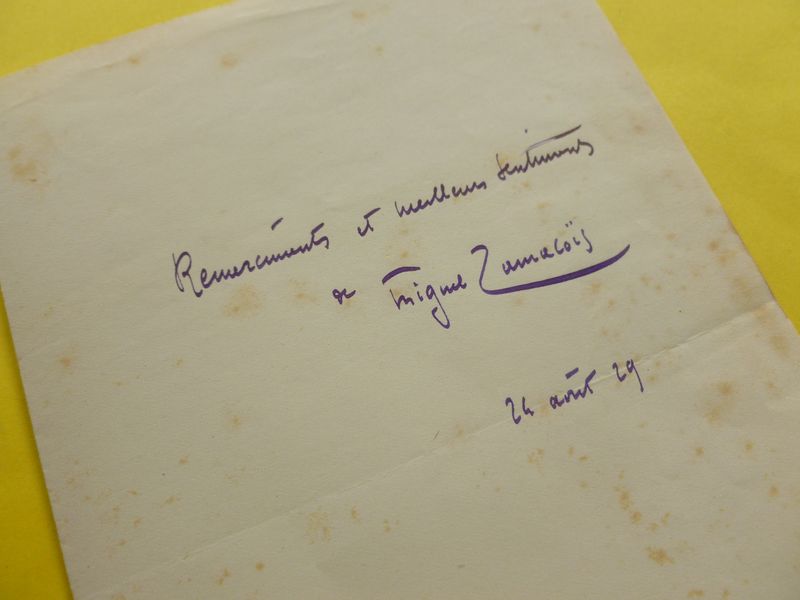 Remerciements et meilleurs sentiments
de Miguel Zamacoïs
24 août 29